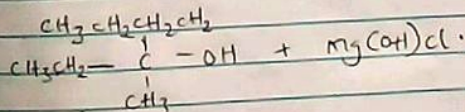 CH3CH2CH2CH2
CH3CH2— C — OH + Mg(OH)Cl.
CH3